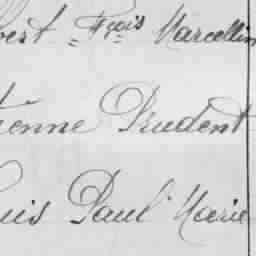 bert = Fçois Marcellin
ienne Prudent
uis Paul Marie